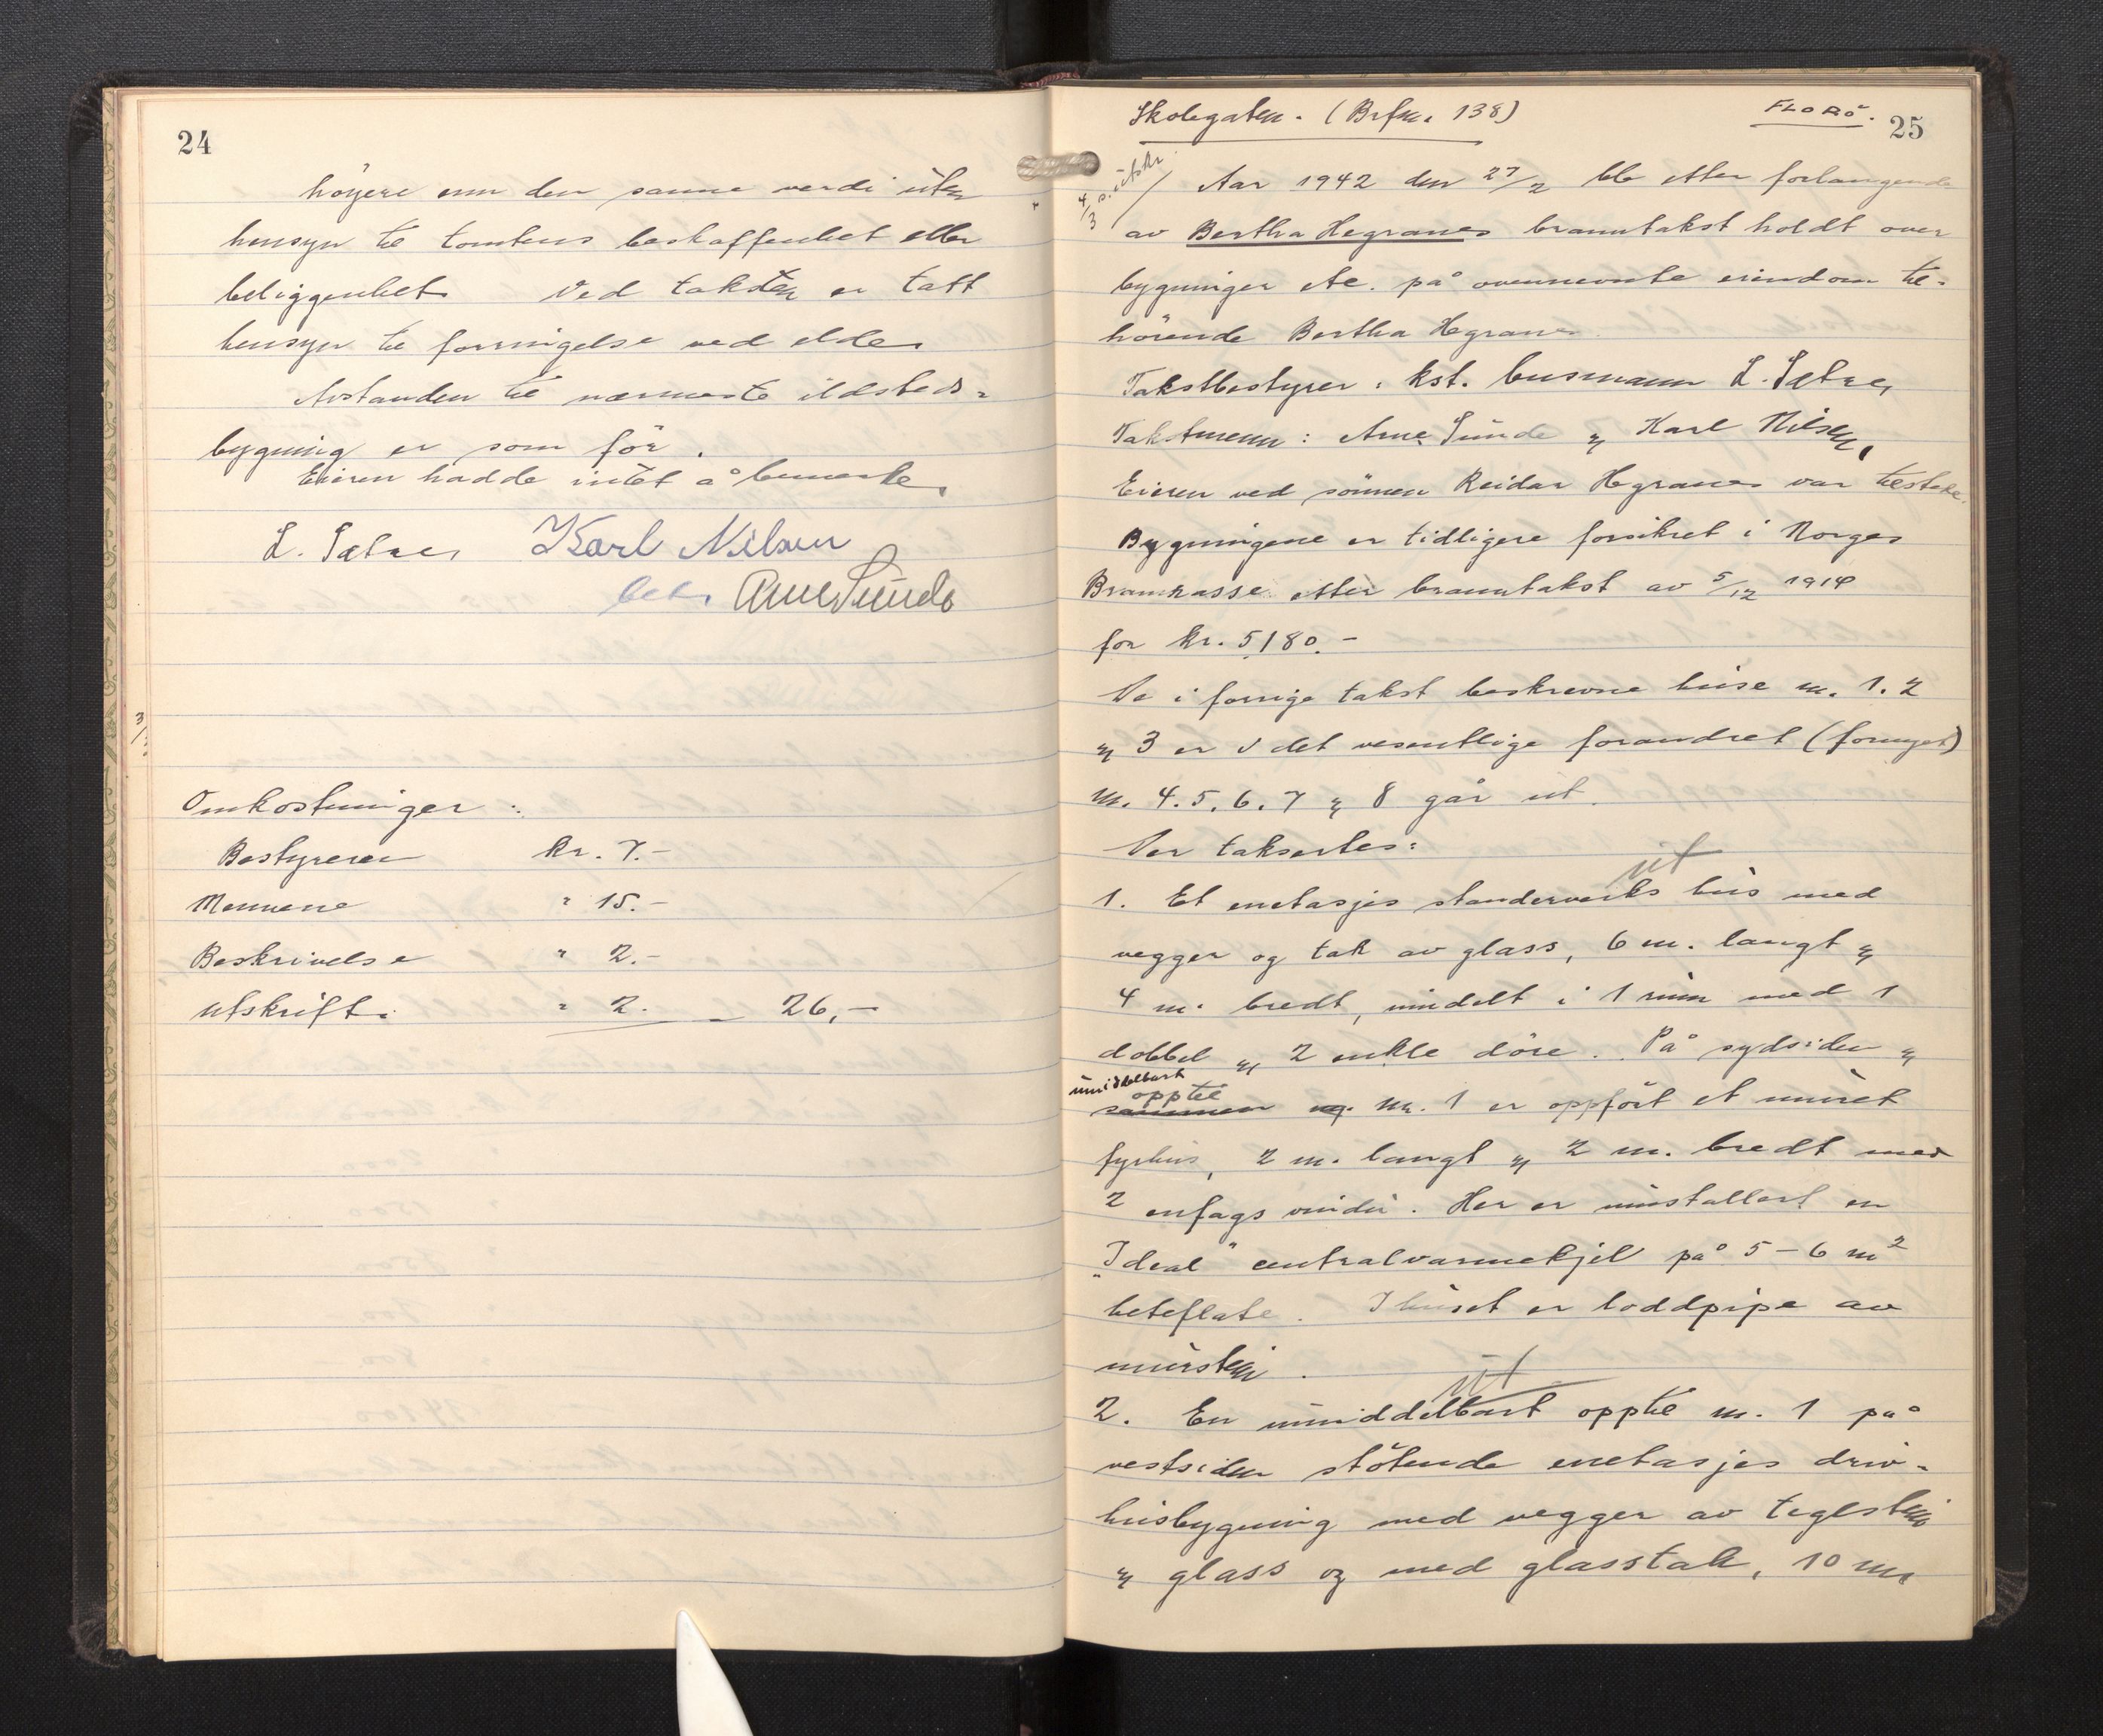 24
höyere enn den sanne verdi uten
hensyn til tomtens beskaffenhet eller
beliggenhet. Ved taksten er tatt
hensyn til forringelse ved elde.
Avstanden til nærmeste ildsteds-
bygning er som för.
Eieren hadde intet å bemerke.
L. Sætre, Karl Nilsen
Arne Sunde
Omkostninger:
Bestyreren kr. 7.-
Mennene " 15.-
Beskrivelse " 2.-
Utskrift. " 2. - 26,-
Skolegaten. (Brfnr. 138)
FLORÖ.
25
4/3 s. utskr
Aar 1942 den 27/2 ble etter forlangende
av Bertha Hegranes branntakst holdt over
bygninger etc. på ovennevnte eiendom til-
hörende Bertha Hegranes.
Takstbestyrer: kst. lensmann L. Sætre,
Takstmenn: Arne Sunde og Karl Nilsen,
Eieren ved sönnen Reidar Hegranes var tilstede.
Bygningene er tidligere forsikret i Norges
Brannkasse etter branntakst av 5/12 1914
for kr. 5180.-
De i forrige takst beskrevne huse nr. 1. 2
og 3 er i det vesentlige forandret (fornyet)
nr. 4. 5. 6. 7 og 8 går ut.
Der takseertes:
ut
1. Et enetasjes standerverks hus med
vegger og tak av glass, 6 m. langt og
4 m. bredt, inndelt i 1 rum med 1
dobbel og 2 enkle döre. På sydsiden og
umiddelbart opptil
sammen m. nr. 1 er oppfört et muret
fyrhus, 2 m. langt og 2 m. bredt med
2 enfags vindu. Her er installert en
"Ideal" centralvarmekjel på 5-6 m²
heteflate. I huset er loddpipe av
murstein.
ut
2. En umiddelbart opptil nr. 1 på
vestsiden stötende enetasjes driv-
husbygning med vegger av teglstein
og glass og med glasstak, 10 m.